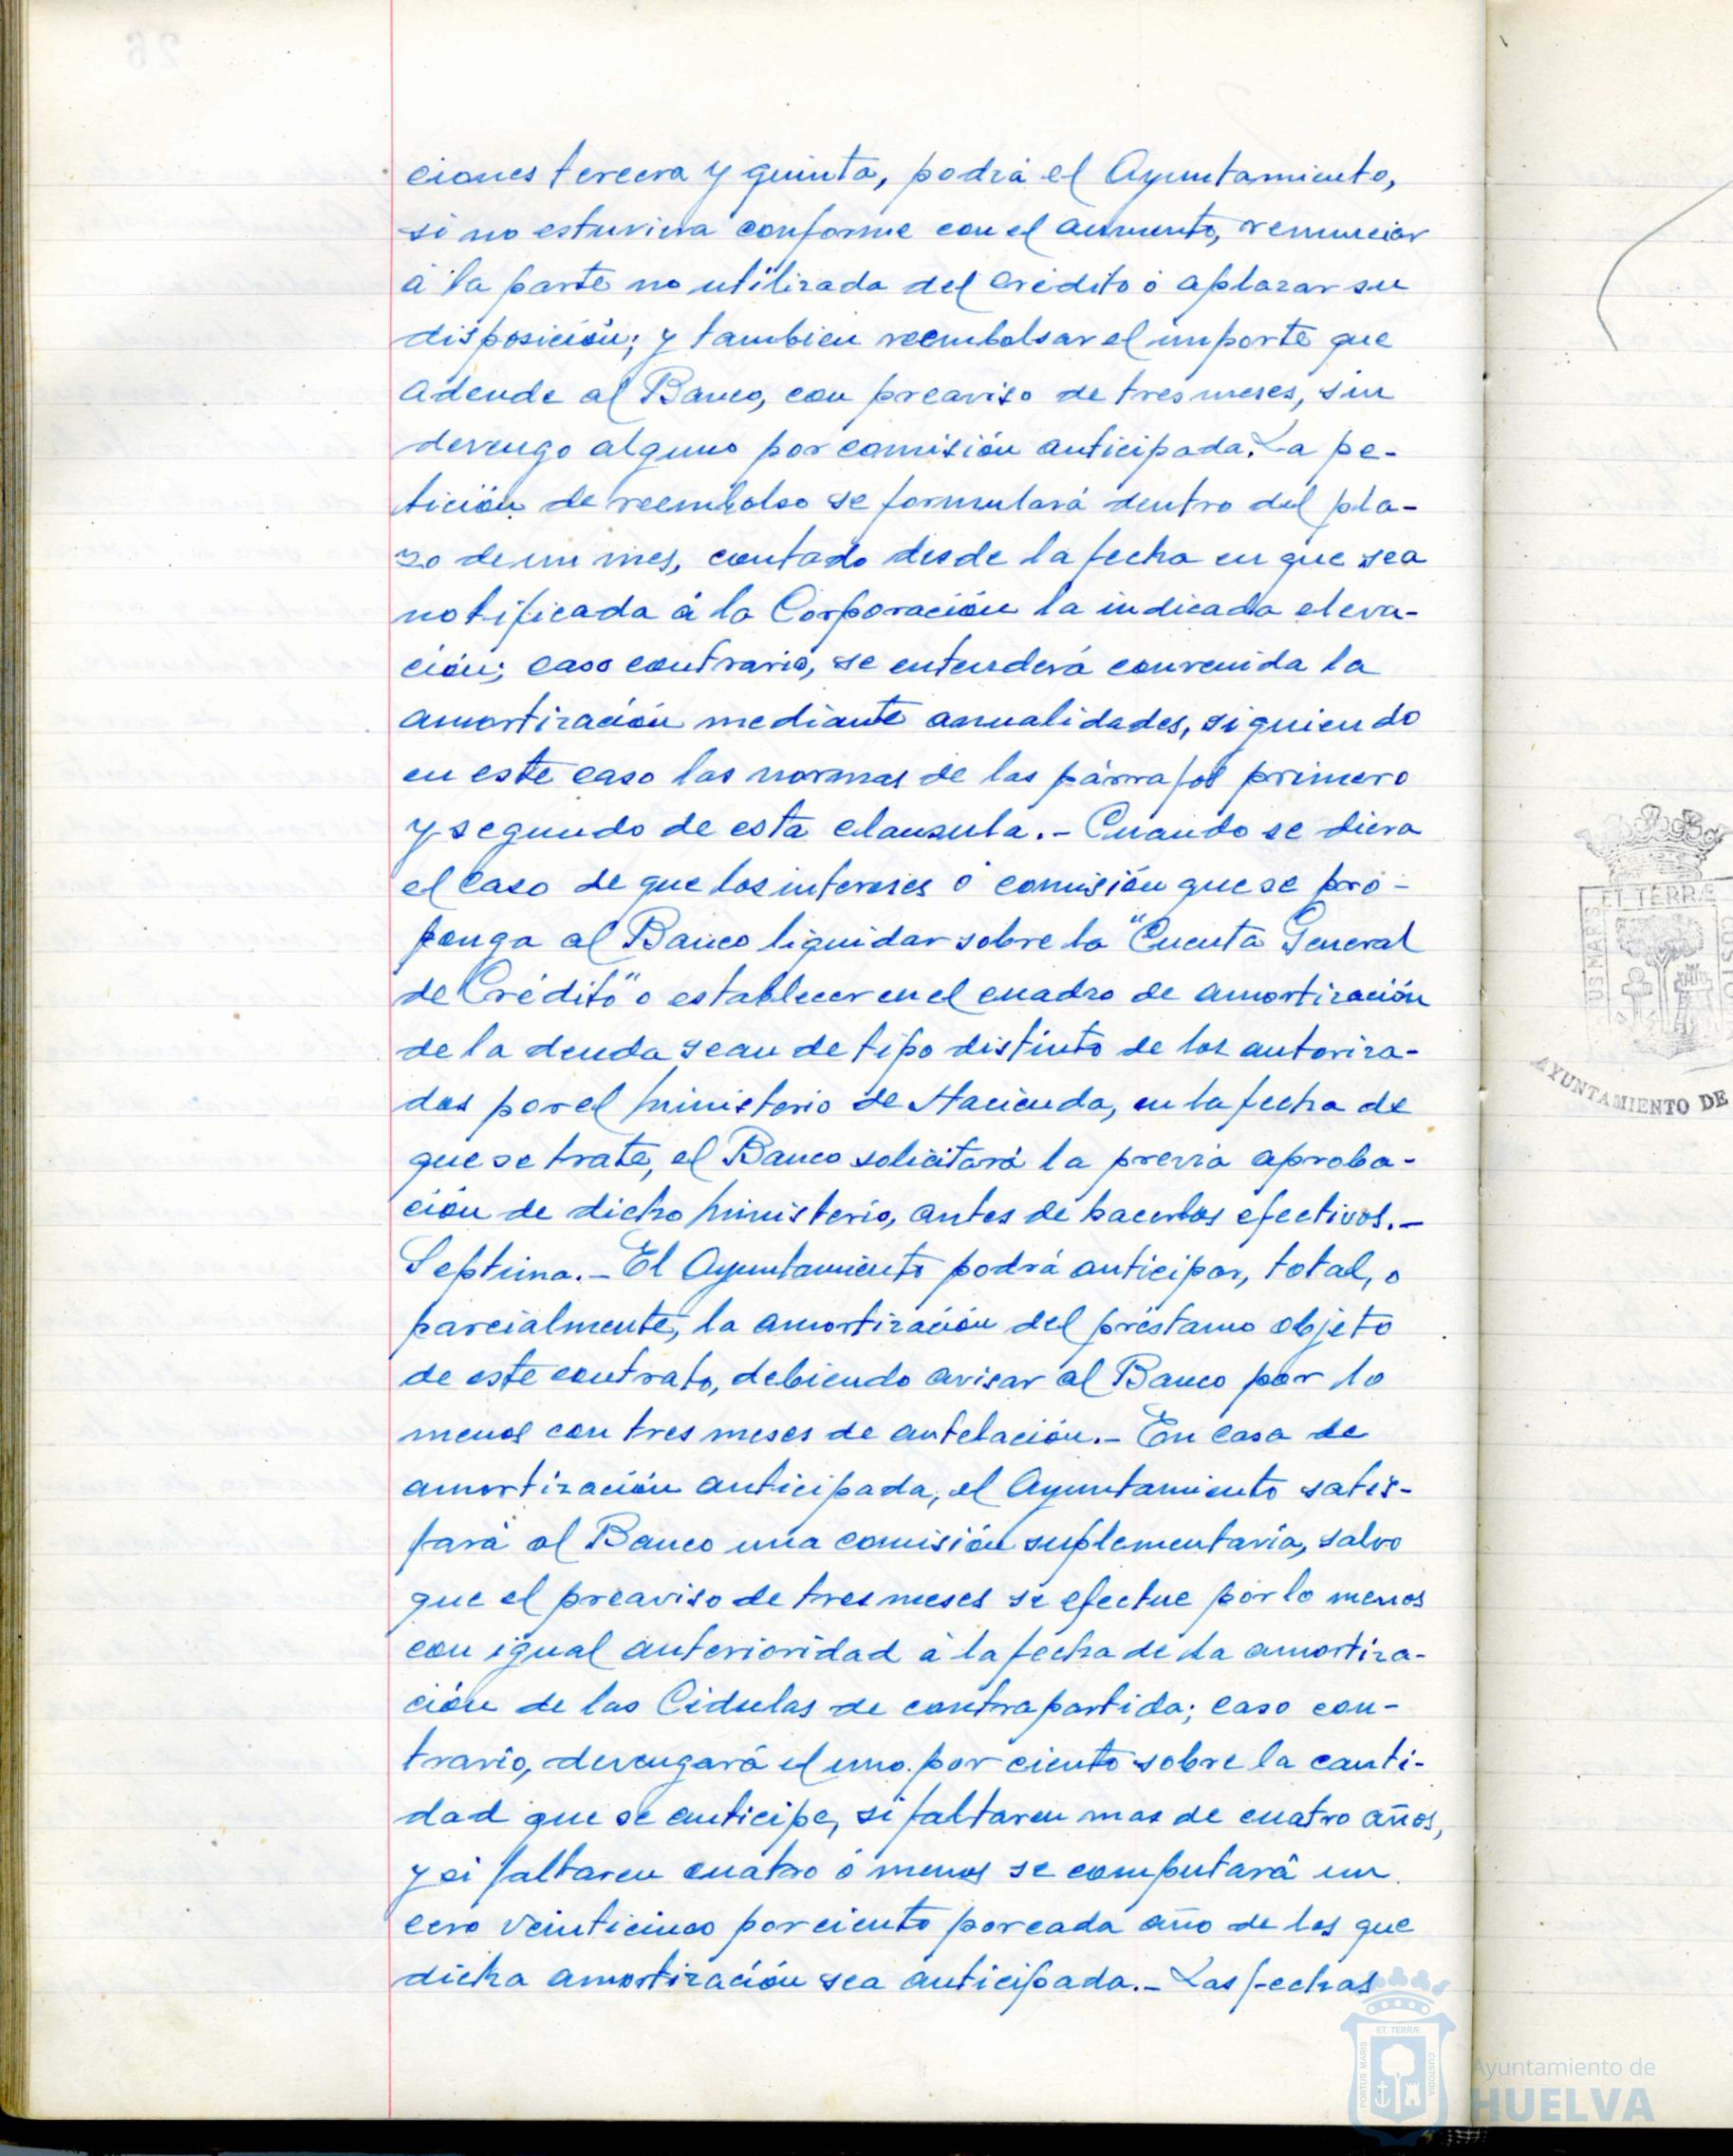 ciones tercera y quinta, podrá el Ayuntamiento,
si no estuviera conforme con el aumento, renunciar
á la parte no utilizada del crédito ó aplazar su
disposición; y tambien reembolsar el importe que
adeude al Banco, con preaviso de tres meses, sin
devengo alguno por comisión anticipada. La pe-
tición de reembolso se formulará dentro del pla-
zo de un mes, contado desde la fecha en que sea
notificada á la Corporación la indicada eleva-
ción; caso contrario, se entenderá convenida la
amortización mediante anualidades, siguiendo
en este caso las normas de los párrafos primero
y segundo de esta clausula.- Cuando se diera
el caso de que los intereses ó comisión que se pro-
ponga al Banco liquidar sobre la "Cuenta General
de Crédito" o establecer en el cuadro de amortización
de la deuda sean de tipo distinto de los autoriza-
dos por el Ministerio de Hacienda, en la fecha de
que se trate, el Banco solicitará la previa aproba-
ción de dicho Ministerio, antes de hacerlos efectivos.-
Septima.- El Ayuntamiento podrá anticipar, total, o
parcialmente, la amortización del préstamo objeto
de este contrato, debiendo avisar al Banco por lo
menos con tres meses de antelación.- En caso de
amortización anticipada, el Ayuntamiento satis-
fará al Banco una comisión suplementaria, salvo
que el preaviso de tres meses se efectue por lo menos
con igual anterioridad á la fecha de la amortiza-
ción de las Cédulas de contrapartida; caso con-
trario, devengará el uno por ciento sobre la canti-
dad que se anticipe, si faltaren mas de cuatro años,
y si faltaren cuatro ó menos se computará un
cero veinticinco por ciento por cada año de los que
dicha amortización sea anticipada.- Las fechas
ET TERRÆ
US MARIS
AYUNTAMIENTO DE
ET TERRÆ
PORTUS MARIS
CUSTODIA
Ayuntamiento de
HUELVA